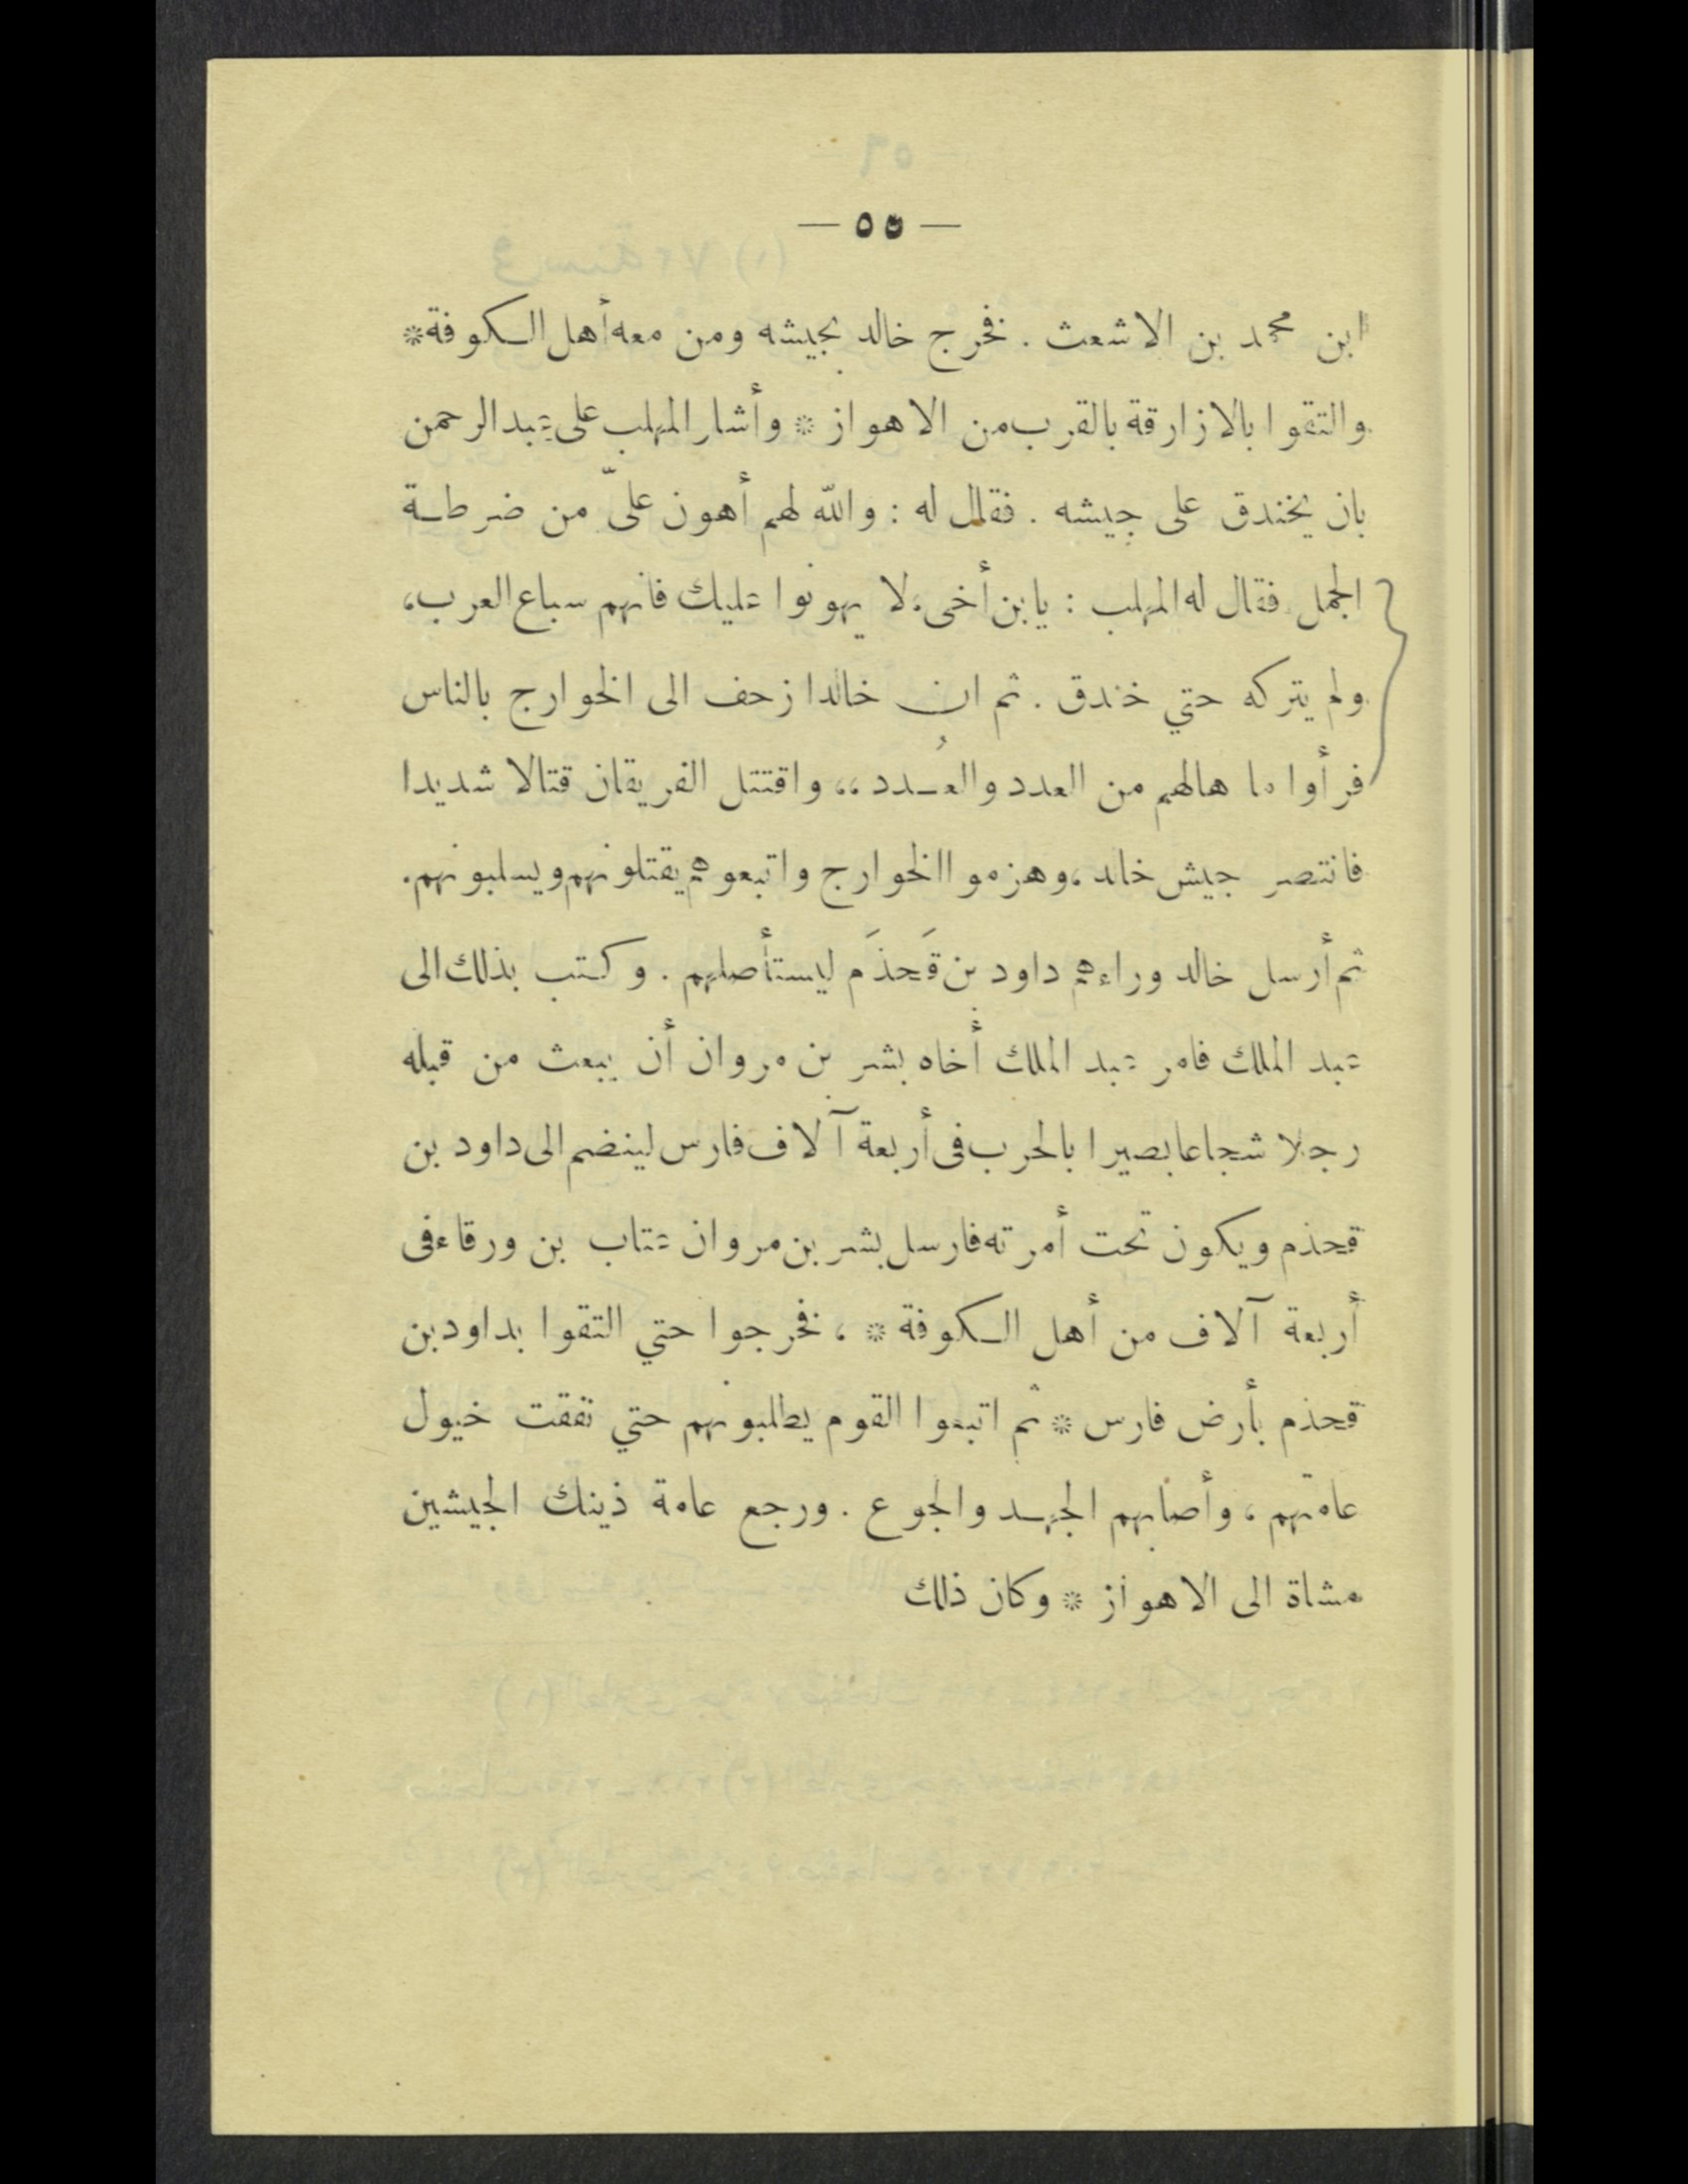 — ٥٥ —
ابن محمد بن الاشعث . فخرج خالد بجيشه ومن معه أهل الكوفة *
والتقوا بالازارقة بالقرب من الاهواز * وأشار المهلب على عبد الرحمن
بان يخندق على جيشه . فقال له : والله لهم أهون علىّ من ضرطة
الجمل فقال له المهلب : يابن أخى، لا يهونوا عليك فانهم سباع العرب،
ولم يتركه حتي خندق . ثم ان خالدا زحف الى الخوارج بالناس
فرأوا ما هالهم من العدد والعُدد ،، واقتتل الفريقان قتالا شديدا
فانتصر جيش خالد ، وهزموا الخوارج واتبعوهم يقتلونهم ويسلبونهم.
ثم أرسل خالد وراءهم داود بن قَحذَم ليستأصلهم . وكتب بذلك الى
عبد الملك فامر عبد الملك أخاه بشر بن مروان أن يبعث من قبله
رجلا شجاعا بصيرا بالحرب فى أربعة آلاف فارس لينضم الى داود بن
قحذم ويكون تحت أمرته فارسل بشر بن مروان عتاب بن ورقاء فى
أربعة آلاف من أهل الكوفة * ، فخرجوا حتي التقوا بداود بن
قحذم بأرض فارس * ثم اتبعوا القوم يطلبونهم حتي نفقت خيول
عامتهم ، وأصابهم الجهد والجوع . ورجع عامة ذينك الجيشين
مشاة الى الاهواز * وكان ذلك